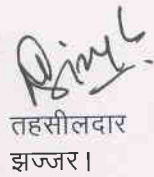 तहसीलदार
झज्जर।